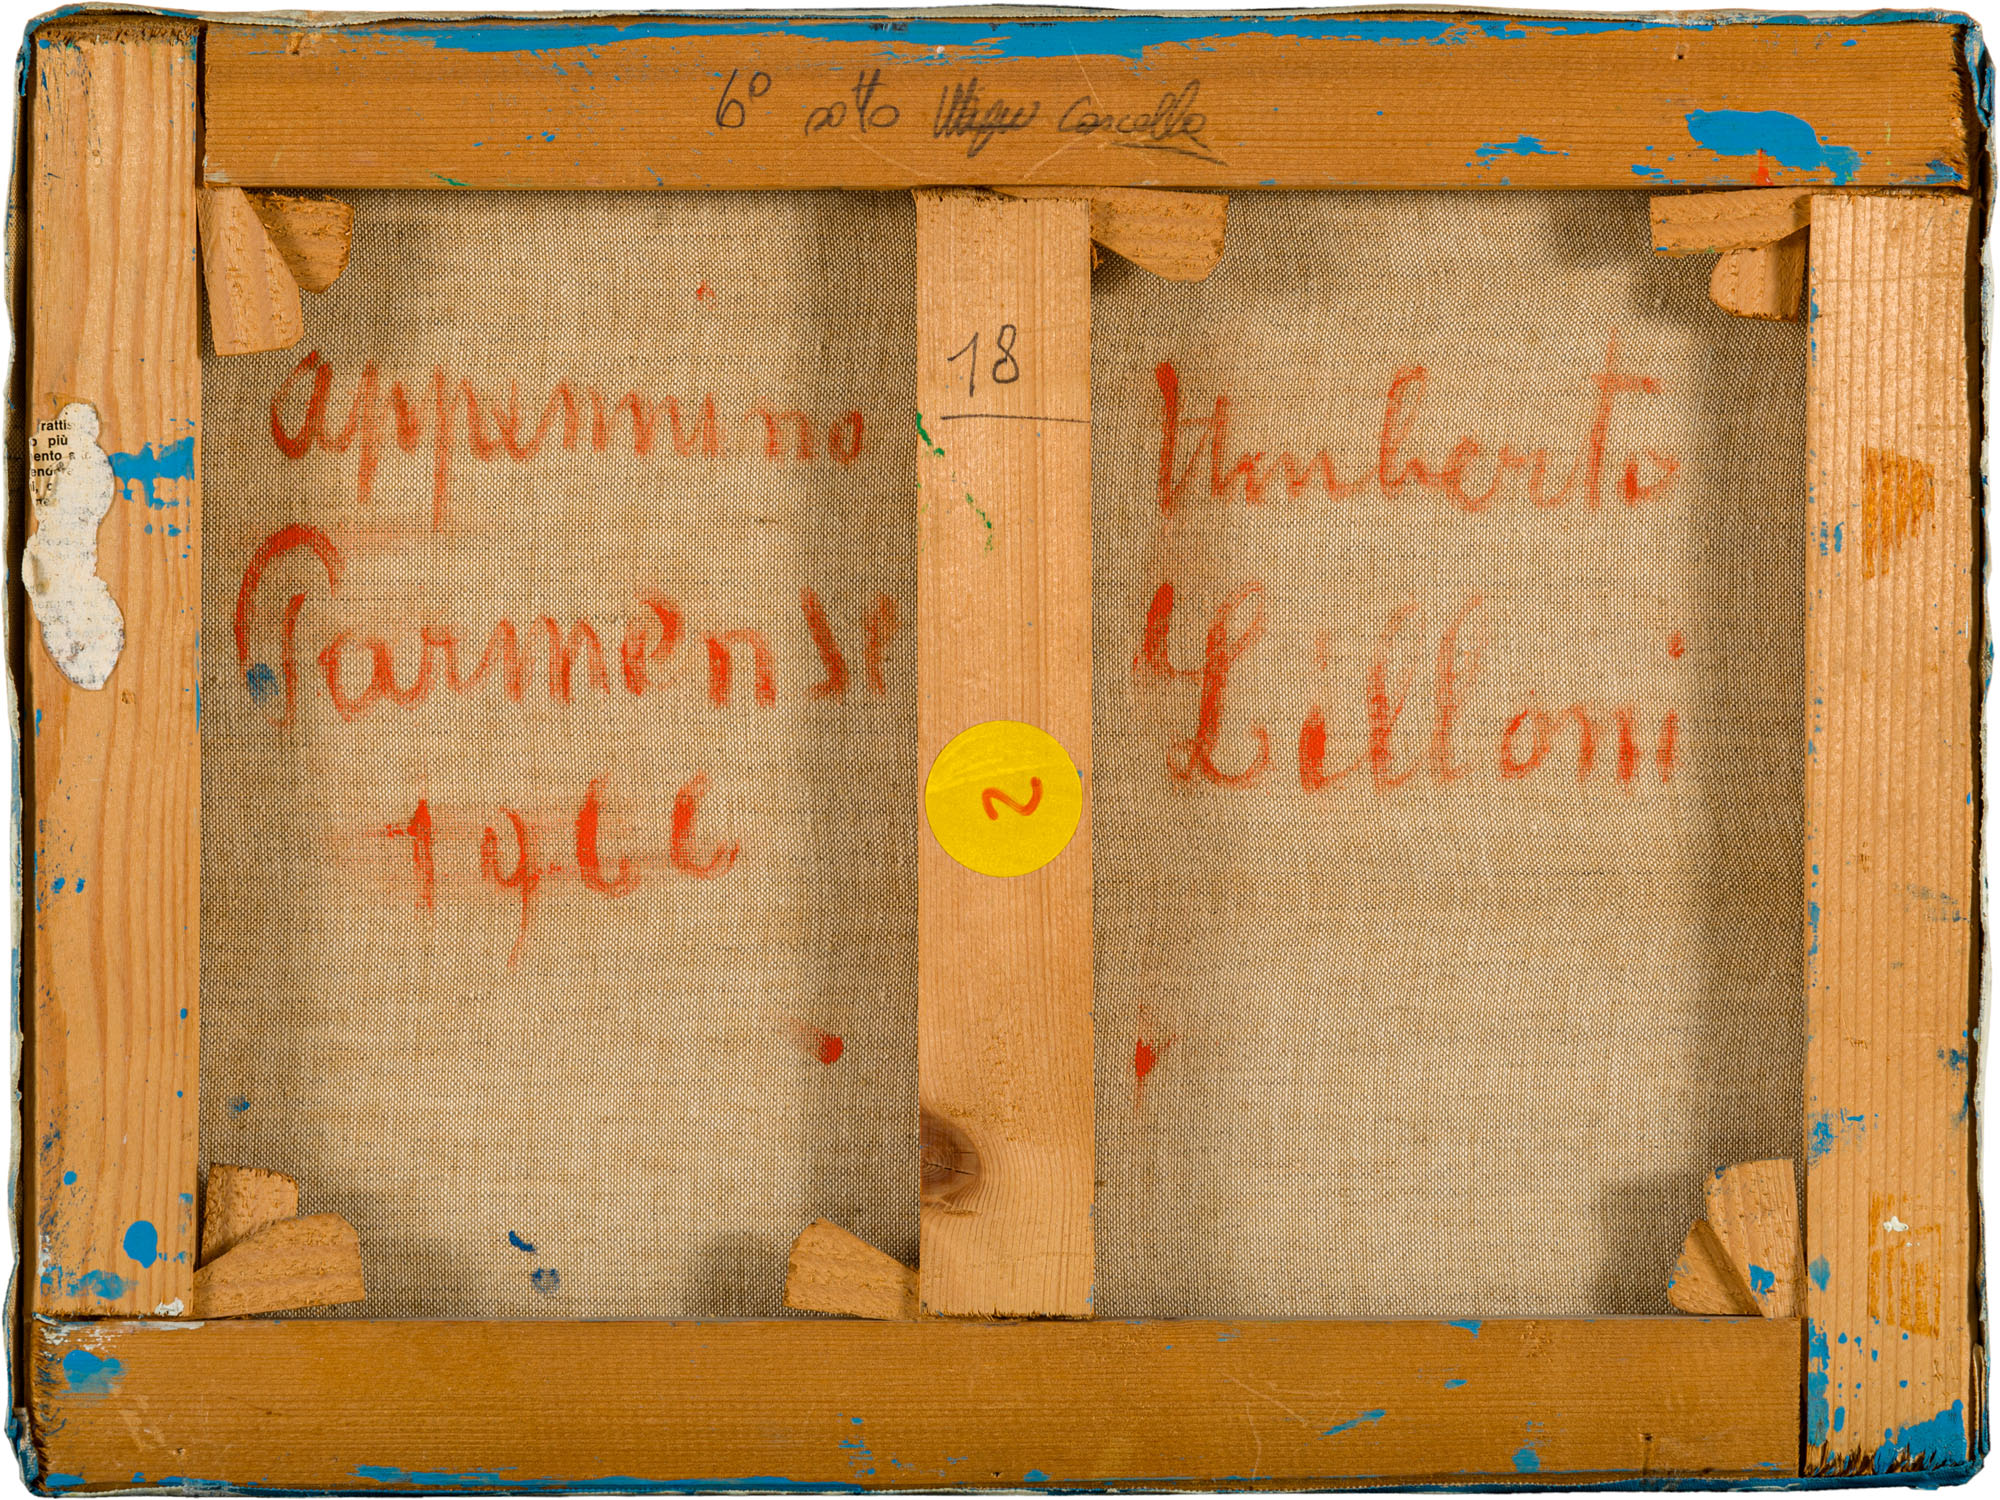 6º sotto Cascella
18
appennino
Parmense
1966
Umberto
Lilloni
rattis
o più
ento a